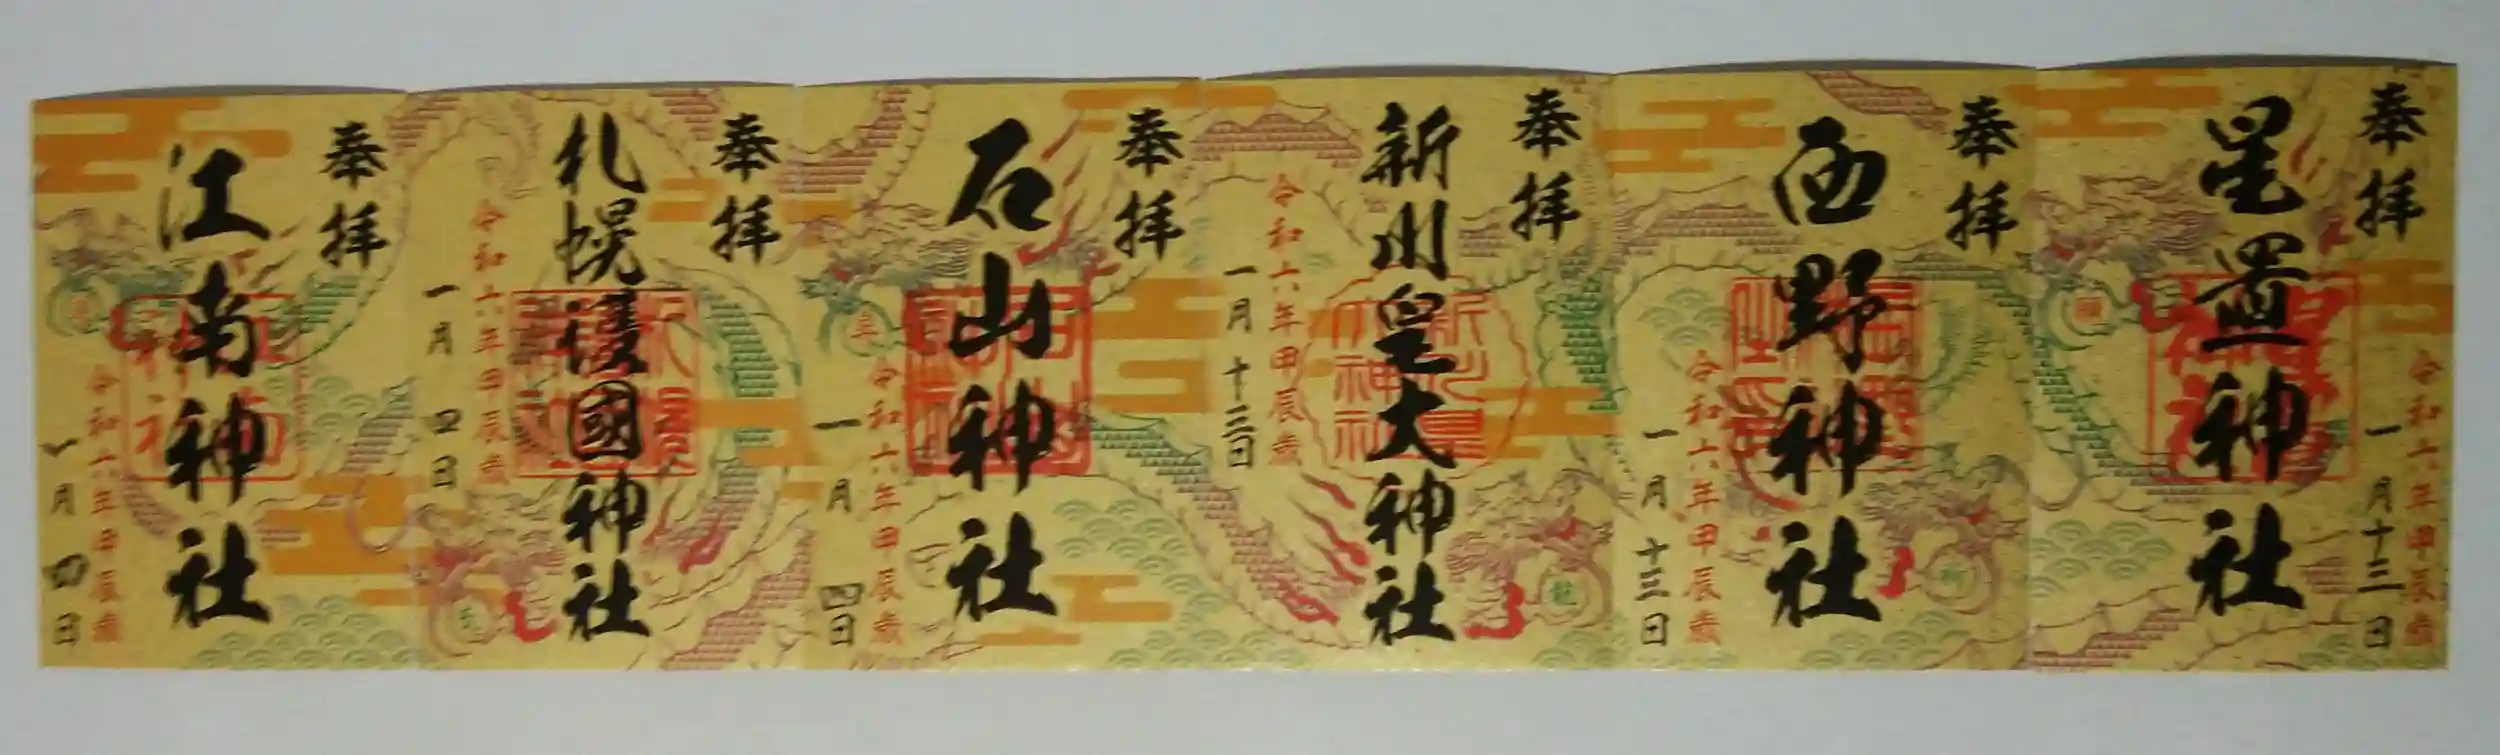 奉拝
令和六年甲辰歳
一月十三日
星置神社
奉拝
西野神社
令和六年甲辰歳
一月十三日
奉拝
新川皇大神社
令和六年甲辰歳
一月十三日
奉拝
石山神社
令和六年甲辰歳
一月四日
奉拝
札幌護國神社
令和六年甲辰歳
一月四日
奉拝
江南神社
令和六年甲辰歳
一月四日